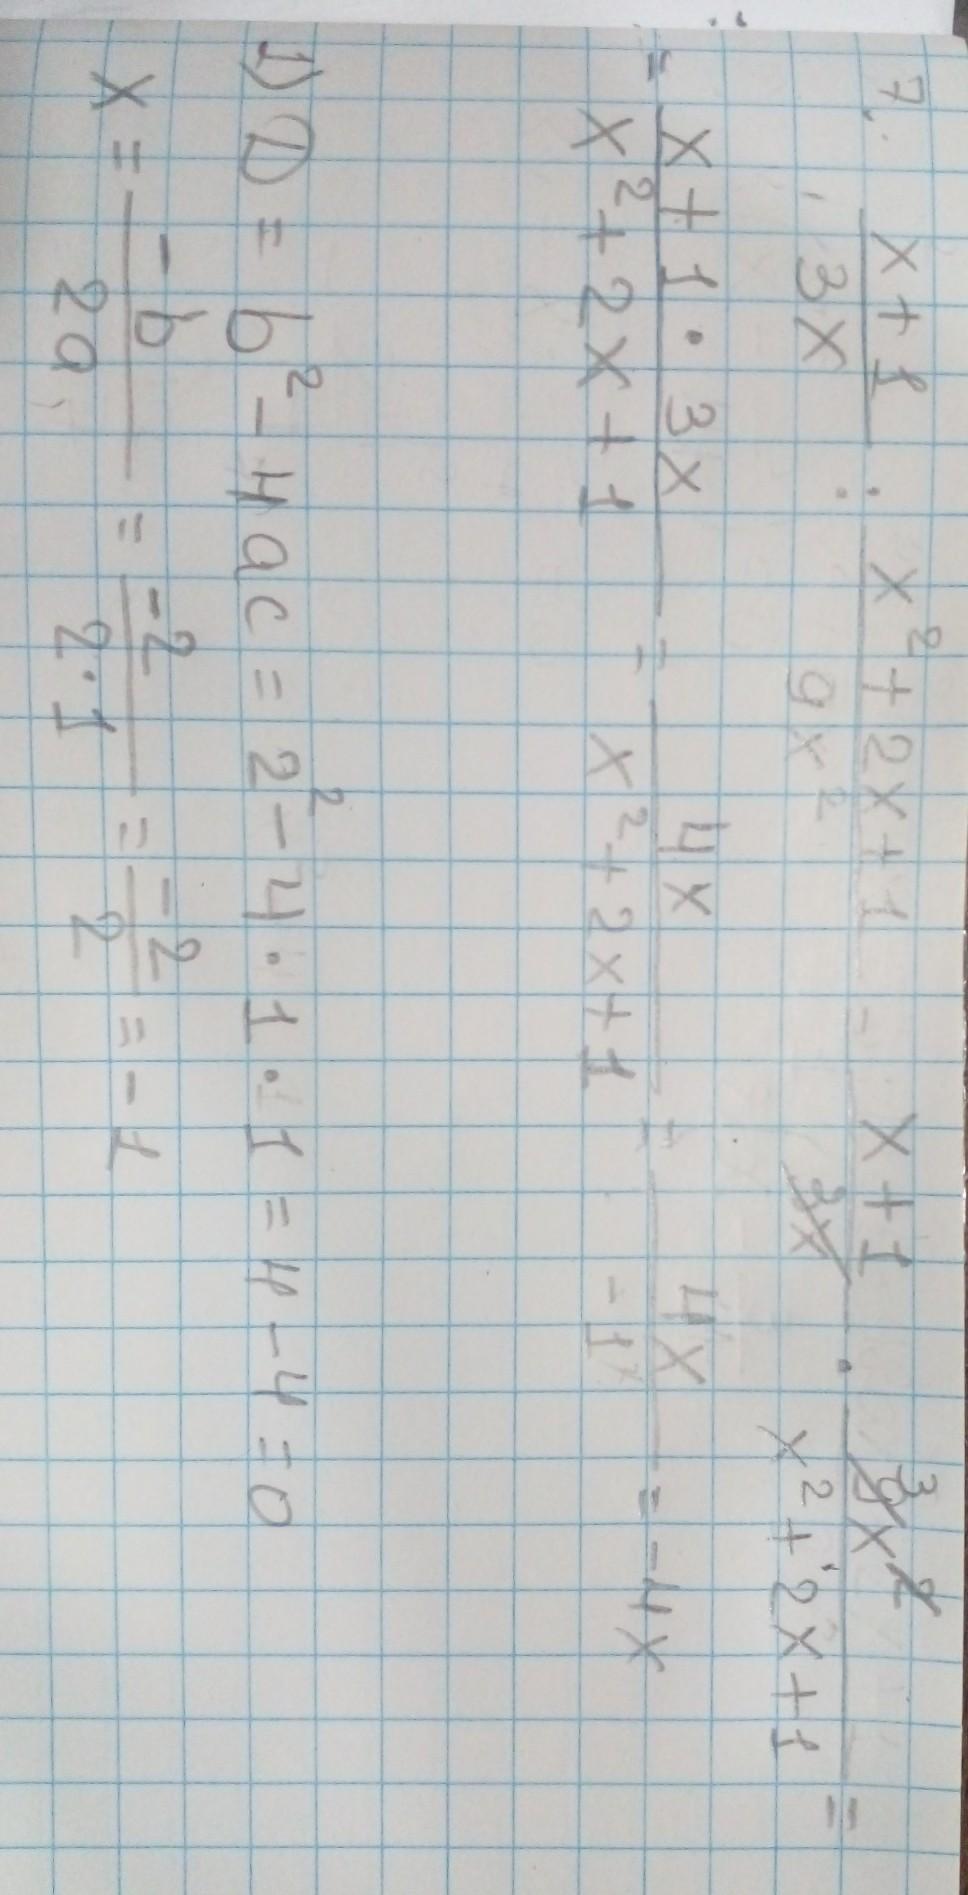 7. (x+1)/(3x) : (x²+2x+1)/(9x²) = (x+1)/(3x) · (³9x²)/(x²+2x+1) =
= (x+1·3x)/(x²+2x+1) = 4x/(x²+2x+1) = 4x/(-1) = -4x
1) D = b²-4ac = 2²-4·1·1 = 4-4 = 0
x = -b/2a = -2/(2·1) = -2/2 = -1